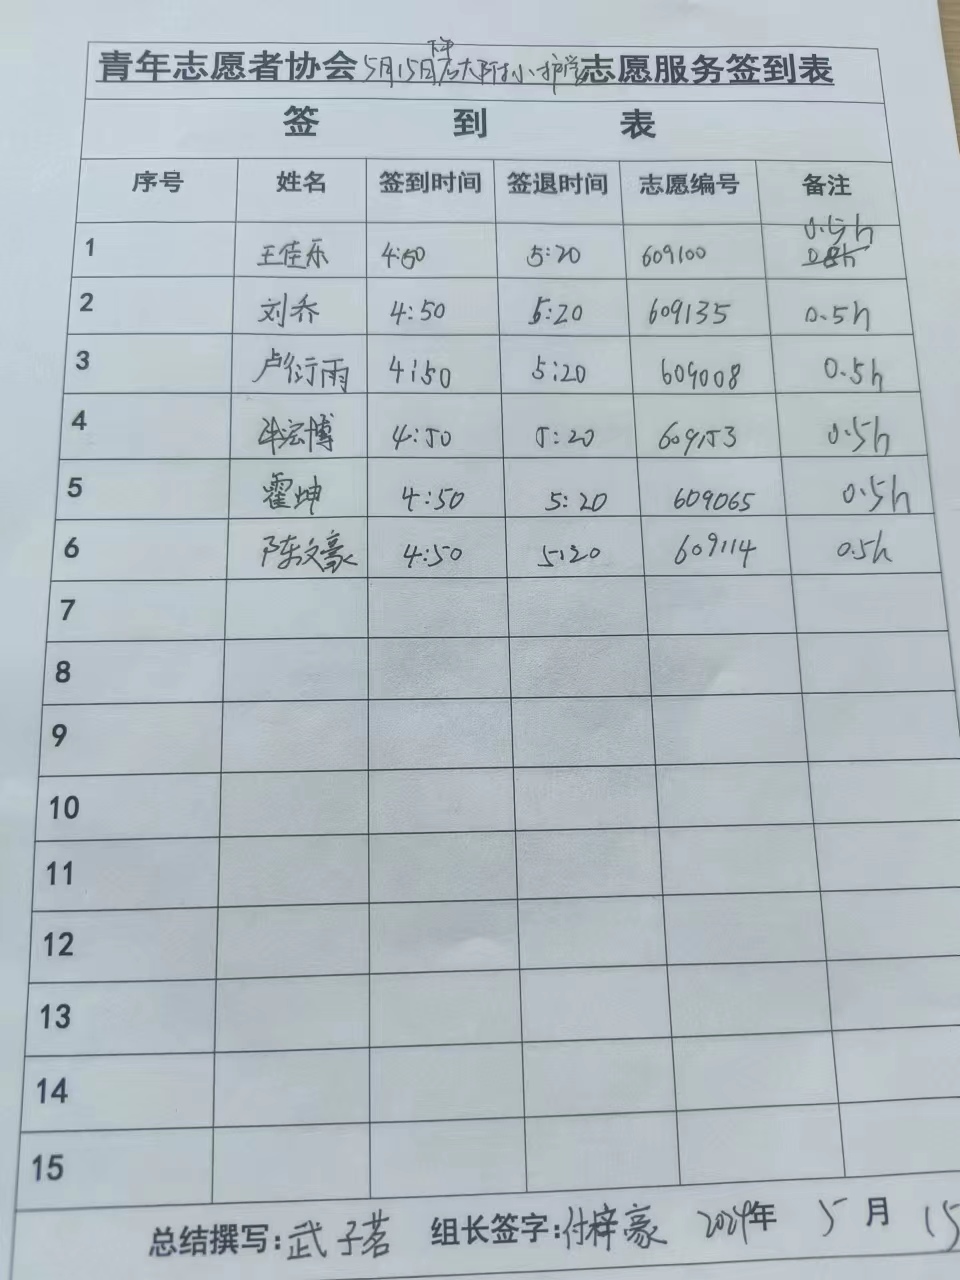 青年志愿者协会5月15日下午石大附小护学志愿服务签到表
签 到 表
序号 姓名 签到时间 签退时间 志愿编号 备注
1 王佳乐 4:50 5:20 609100 0.5h
2 刘乔 4:50 5:20 609135 0.5h
3 卢衍雨 4:50 5:20 609008 0.5h
4 宏博 4:50 5:20 609153 0.5h
5 霍坤 4:50 5:20 609065 0.5h
6 陈文豪 4:50 5:20 609114 0.5h
7
8
9
10
11
12
13
14
15
总结撰写:武子茗 组长签字:付梓豪 2024年 5月 15